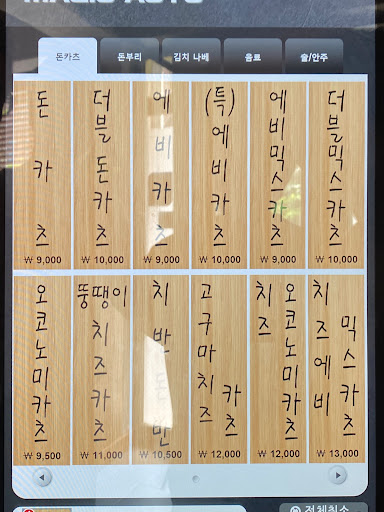 돈카츠
돈부리
김치 나베
음료
술/안주
돈카츠
₩ 9,000
더블돈카츠
₩ 10,000
에비카츠
₩ 9,000
(특)에비카츠
₩ 10,000
에비믹스카츠
₩ 9,000
더블믹스카츠
₩ 10,000
오코노미카츠
₩ 9,500
뚱땡이
치즈카츠
₩ 11,000
치반 반
₩ 10,500
고구마치즈
카츠
₩ 12,000
치즈
오코노미카츠
₩ 12,000
치즈에비
믹스카츠
₩ 13,000
전체취소